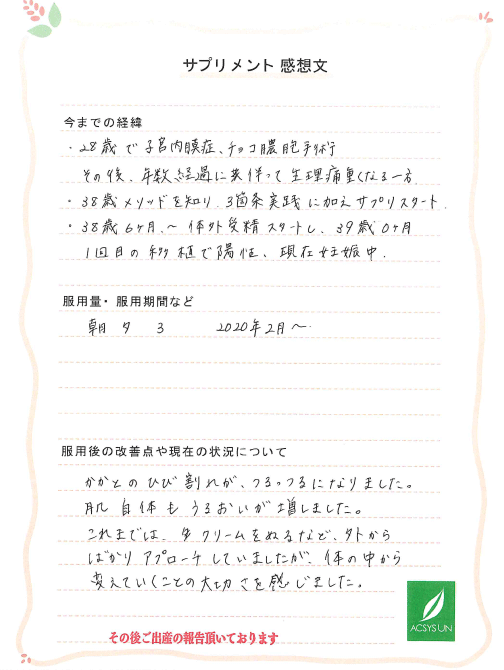 サプリメント 感想文
今までの経緯
・28歳で子宮内膜症、チョコ膿胞手術
その後、年数経過に共伴って生理痛重くなる一方
・38歳メソッドを知り、3箇条実践に加えサプリスタート
・38歳6ヶ月、〜体外受精スタートし、39歳0ヶ月
1回目の移植で陽性、現在妊娠中.
服用量・服用期間など
朝 夕 3 2020年2月〜
服用後の改善点や現在の状況について
かかとのひび割れが、つるっつるになりました。
肌自体もうるおいが増しました。
これまでは、クリームをぬるなど、外から
ばかりアプローチしていましたが、体の中から
変えていくことの大切さを感じました。
ACSYSUN
その後ご出産の報告頂いております